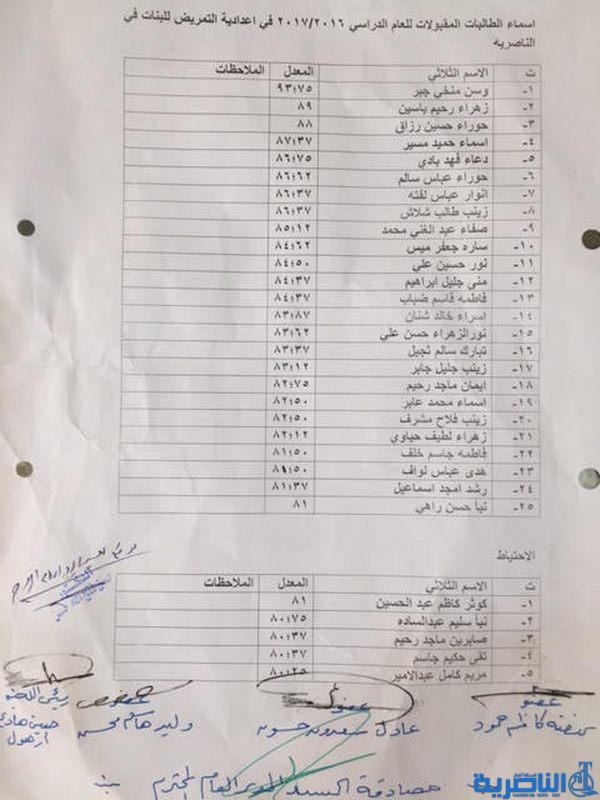 اسماء الطالبات المقبولات للعام الدراسي ٢٠١٧/٢٠١٦ في اعدادية التمريض للبنات في
الناصريه
ت الاسم الثلاثي المعدل الملاحظات
١- وسن منخي جبر ٩٣؛٧٥
٢- زهراء رحيم ياسين ٨٩
٣- حوراء حسين رزاق ٨٨
٤- اسماء حميد مسير ٨٧؛٣٧
٥- دعاء فهد بادي ٨٦؛٧٥
٦- حوراء عباس سالم ٨٦؛٦٢
٧- انوار عباس لفته ٨٦؛٣٧
٨- زينب طالب شلاش ٨٦؛٣٧
٩- صفاء عبد الغني محمد ٨٥؛١٢
١٠- ساره جعفر ميس ٨٤؛٦٢
١١- نور حسين علي ٨٤؛٥٠
١٢- منى جليل ابراهيم ٨٤؛٣٧
١٣- فاطمه قاسم ضباب ٨٤؛٣٧
١٤- اسراء خالد شنان ٨٣؛٨٧
١٥- نورالزهراء حسن علي ٨٣؛٦٢
١٦- تبارك سالم ثجيل ٨٣؛٣٧
١٧- زينب جليل جابر ٨٣؛١٢
١٨- ايمان ماجد رحيم ٨٢؛٧٥
١٩- اسماء محمد عابر ٨٢؛٥٠
٢٠- زينب فلاح مشرف ٨٢؛٥٠
٢١- زهراء لطيف حياوي ٨٢؛١٢
٢٢- فاطمه جاسم خلف ٨١؛٥٠
٢٣- هدى عباس لواف ٨١؛٥٠
٢٤- رشد امجد اسماعيل ٨١؛٣٧
٢٥- نبأ حسن راهي ٨١
الاحتياط
ت الاسم الثلاثي المعدل الملاحظات
١- كوثر كاظم عبد الحسين ٨١
٢- نبأ سليم عبدالساده ٨٠؛٧٥
٣- صابرين ماجد رحيم ٨٠؛٣٧
٤- تقى حكيم جاسم ٨٠؛٣٧
٥- مريم كامل عبدالامير ٨٠؛٢٥
عضو عضو عضو رئيس اللجنه
كاظم حمود عادل سعدون حسونه وليد هاشم محسن حسين هادي
مصادقة السيد المدير العام المحترم
الناصرية